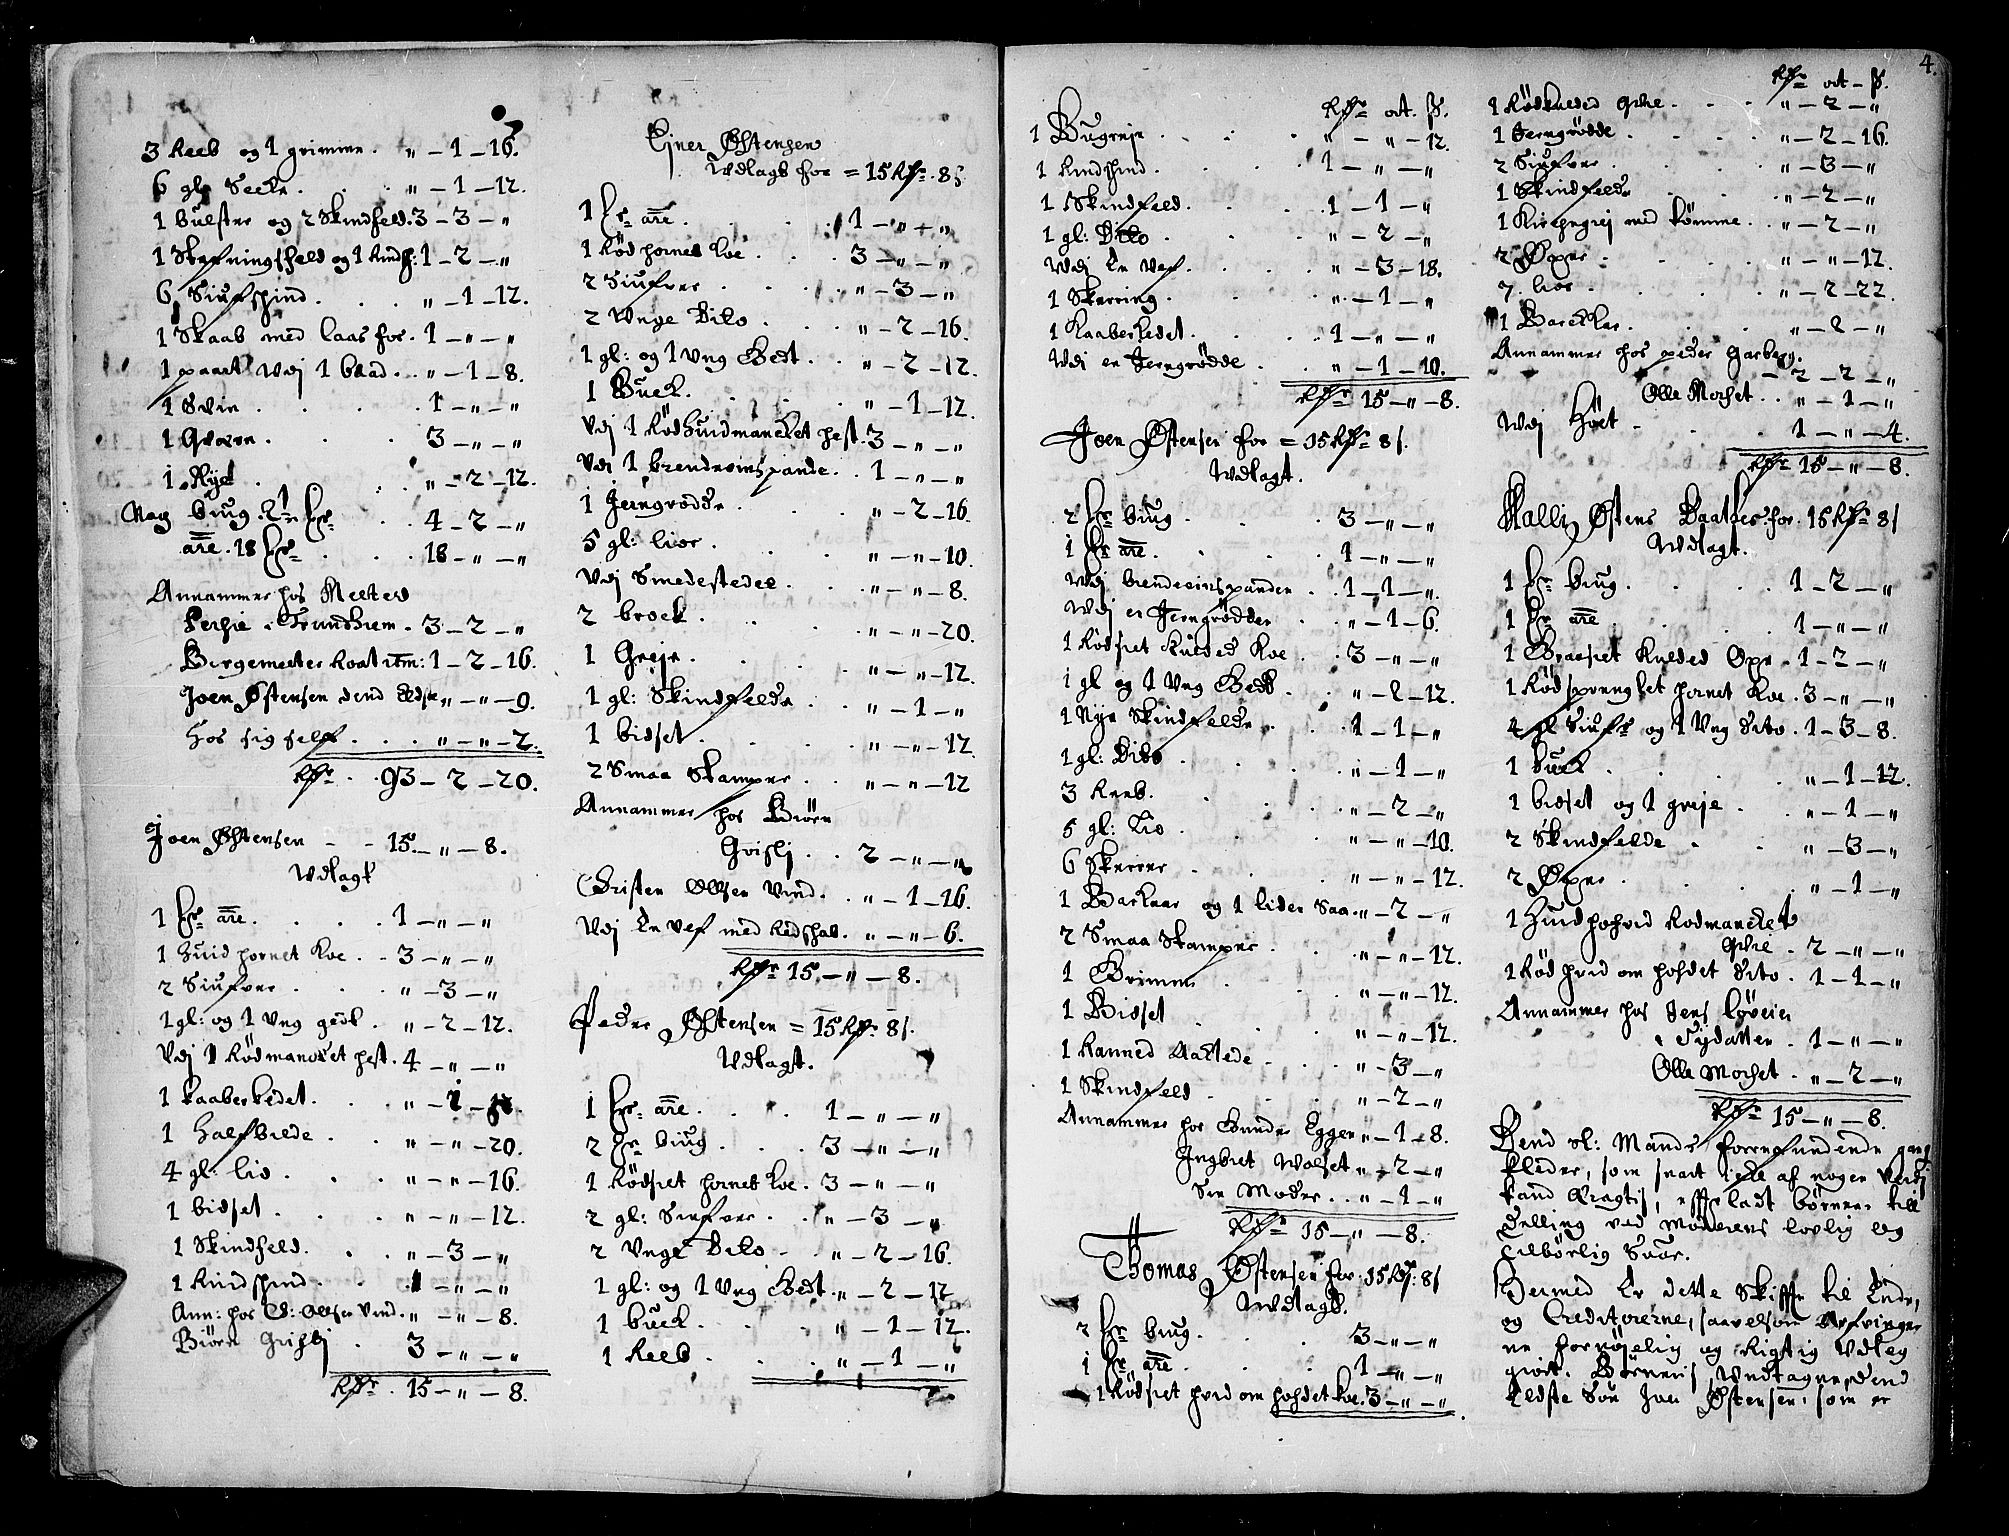 3 Reeb og 1 grimme . „ – 1 – 16.
6 gl. Secke . . „ – 1 – 12.
1 bulster og 2 Skindfeld. 3 – 3 – „
1 Skefningsfeld og 1 : 1 – 2 – „
6 Siufskind . . . „ – 1 – 12.
1 Skaab med laas for . 1 – „ – „
1 paart Udj 1 baad . . „ – 1 – 8.
1 Svin . . . 1 – „ – „
1 Qværn . . . 3 – „ – „
1 Ryet . . . „ – 2 – 12.
Nag biug . . 4 – 2 – „
are. 18 . . . 18 – „ – „
Annammer hos Mester
Persie i Trundhiem . 3 – 2 – „
Borgemester : 1 – 2 – 16.
Joen Østensen dend Eldste „ – „ – 9.
Hos sig self . . . „ – „ – 2.
Rdr . . 93 – 2 – 20.
Joen Østensen - - 15. – „ – 8.
Udlagt
1 are . . . 1 – „ – „
1 huid hornet Koe . - 3 – „ – „
2 Siufver . . . „ – 3 – „
1 gl: og 1 Ung gedt . „ – 2 – 12.
Udj 1 Rødmancket hest . 4 – „ – „
1 kaaberkedel . . „ –
1 halfbilde . . „ – „ – 20.
4 gl: lio . . . „ – „ – 16.
1 bidsel . . . „ – „ – 12.
1 Skindfeld . . „ – 3 – „
1 Kindskind . . 1 – „ – „
Ann: hos C: Ollsen Vind . „ – „ – 8.
Biørn Grisli . 3 – „ – „
Rdr . 15 – „ – 8.
Ejner Østensen
Udlagt for = 15 Rdr. 8 s
1 are . . . 1 – „ – „
1 Rød hornet Koe . . 3 – „ – „
2 Siufver . . . „ – 3 – „
2 Unge Dito . . „ – 2 – 16.
1 gl: og 1 Ung Bedt . „ – 2 – 12.
1 Buck . . . „ – 1 – 12.
Udj 1 Rødhuidmancket hest . 3 – „ – „
Udi 1 brendevinspande . 1 – „ – „
1 Jerngrødde . . „ – 2 – 16.
5 gl: lior . . . „ – „ – 10.
Udj Smedestedet . . „ – „ – 8.
2 brock . . . „ – „ – 20.
1 Greje . . . „ – „ – 12.
1 gl: Skindfelde . . „ – 1 – „
1 bidsel . . . „ – „ – 12.
2 Smaa Skamper . . „ – „ – 12
Annammer hos Biørn
Grisli . . 2 – „ – „
Christen Ollsen Vind . . „ – 1 – 16.
Udj En Vef med Redskab . „ – „ – 6.
Rdr 15. – „ – 8.
Peder Østensen = 15 Rdr. 8 s.
Udlagt.
1 are . . . 1 – „ – „
2 biug . . . 3 – „ – „
1 Rødsiet hornet Koe . 3 – „ – „
2 gl: Siufver . . „ – 3 – „
2 Unge Dito . „ – 2 – 16.
1 gl: og 1 Ung Bedt . „ – 2 – 12
1 buck . . . „ – 1 – 12.
1 Reeb . . . „ – 1 – „
Rdr ort. s.
1 Bugreje . . . „ – „ – 12.
1 Kindskind . . . 1 – „ – „
1 Skindfeld . . . 1 – 1 – „
1 gl: Dito . . . „ – 2 – „
Udj En Vef . . . „ – 3 – 18.
1 Skerring . . . „ – 1 – „
1 Kaaberkedel . . 1 – „ – „
Udj en Jerngrødde . . „ – 1 – 10.
Rdr 15 – „ – 8.
Joen Østensen for = 15 Rdr 8 s.
Udlagt.
2 biug . . . 3 – „ – „
1 are . . . 1 – „ – „
Udj brendevinspanden . . 1 – 1 – „
Udj en Jerngrødder . . „ – 1 – 6.
1 Rødsiet Kulled Koe . 3 – „ – „
1 gl og 1 Ung Bedt . . „ – 2 – 12.
1 Nye Skindfelde . . 1 – 1 – „
1 gl: Dito . . . „ – 1 – „
3 Reeb . . . „ – 2 – „
5 gl: Lio . . . „ – „ – 10.
6 Skeerer . . . „ – „ – 12.
1 Backaar og 1 liden Saa . „ – 2 – „
2 Smaa Skamper . . „ – „ – 12.
1 Grimme . . . „ – „ – 12.
1 Bidsel . . . „ – „ – 12.
1 Ranned Aaklede . . „ – 3 – „
1 Skindfeld . . . „ – 2 – „
Annammer hos Gunder Eggen „ – 1 – 8.
Ingbret Wolset „ – 2 – „
Sin Moder . . „ – 1 – „
Rdr 15 – „ – 8.
Thomas Østensen for 15 Rdr. 8 s
Udlagt.
2 biug . . . 3 – „ – „
1 are . . . 1 – „ – „
1 Rødsiet hvid om hofdet Koe . 3 – „ – „
4.
Rdr ort – s.
1 Rødkulled Qvie . . . „ – 2 – „
1 Jerngrødde . . . „ – 2 – 16.
2 Siufver . . . „ – 3 – „
1 Skindfelde . . . „ – 2 – „
1 med tømme . . „ – 2 – „
2 Øxer . . . „ – „ – 12.
7. lior . . . „ – 2 – 22.
1 Backkar . . . „ – 2 – „
Annammer hos peder Garberg.
– 2 – 2 – „
Olle Moxset . . „ – 1 – „
Udj Høet . . . 1 – „ – 4.
Rdr 15 – „ – 8.
Halli Østens Daatter for 15 Rdr 8 s
Udlagt.
1 biug . . . 1 – 2 – „
1 are . . . 1 – „ – „
1 Graasiet Kulled Oxe . 1 – 2 – „
1 Rødsprenglet hornet Koe . 3 – „ – „
4 gl Siufr og 1 Ung Dito . 1 – 3 – 8.
1 buck . . . „ – 1 – 12.
1 bidsel og 1 greje . . „ – 1 – „
2 Skindfelde . . „ – 3 – „
2 Øxer . . . „ – 1 – „
1 Huidhofvid Rodmancket
Qvie . 2 – „ – „
1 Rød hvid om hofdet Dito . 1 – 1 – „
Annammer hos Jens Løveien
i Tydallen . 1 – „ – „
Olle Moxset . „ – 2 – „
Rdr 15 – „ – 8.
Dend sl: Mands forrefundende gang
kleder, som snart icke af nogen Verdj
kand Eragtis, efterladt børnene till
deeling ved Moderens lovlig og
tilbørlig Svar.
Hermed Er dette Skiffte til Ende,
og Creditorerne, saavelsom Arfvinger
ne fornøyelig og Rigtig Udleg
giort. Børnenis Undtagne, dend
Eldste Søn Jon Østensen, som er